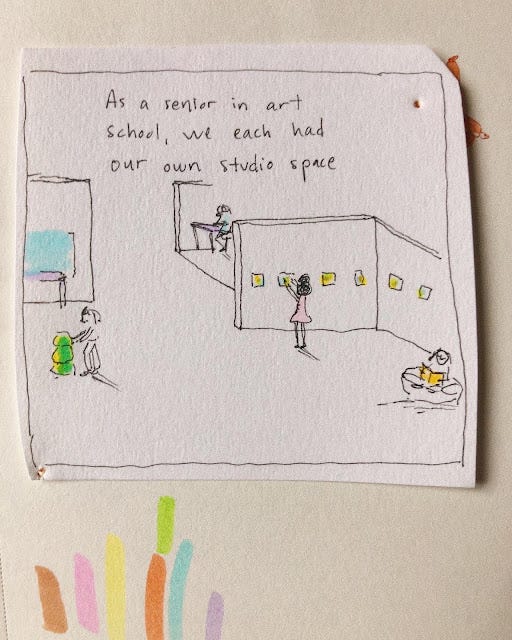 As a senior in art
school, we each had
our own studio space